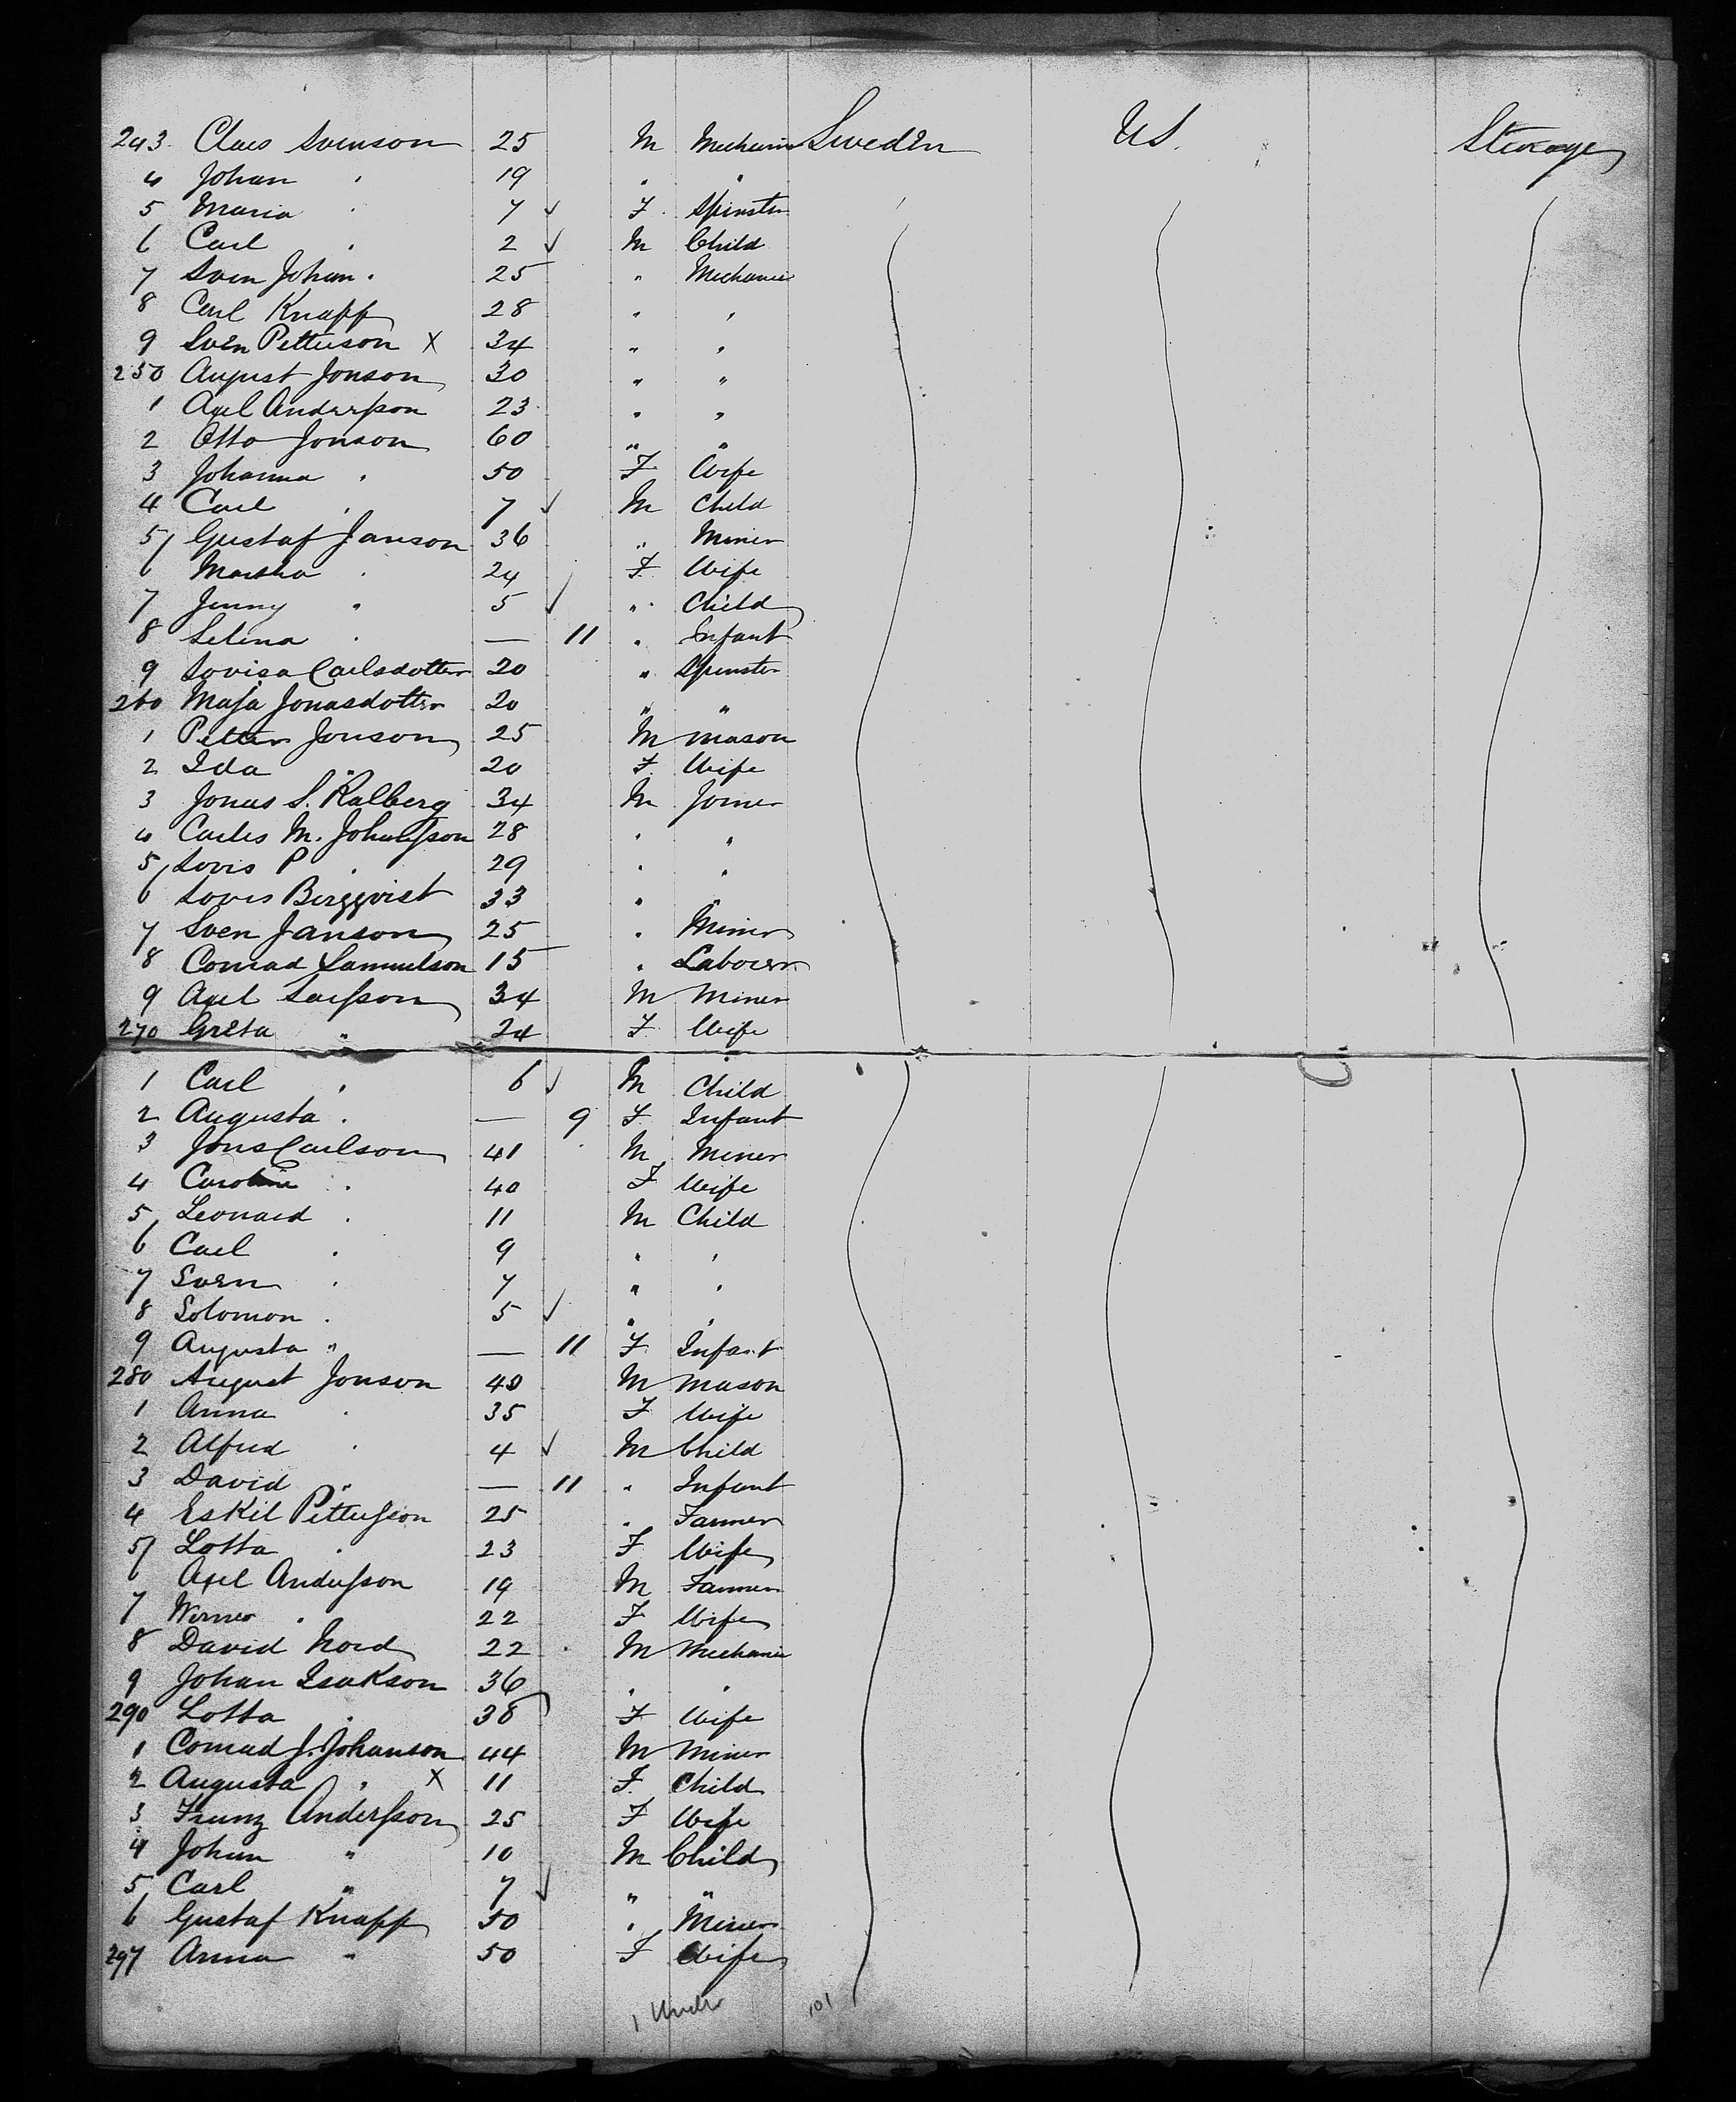 243 Claes Svenson 25 M Mechanic Sweden US Steerage
4 Johan " 19 " "
5 Maria " 7 ✓ F Spinster
6 Carl " 2 ✓ M Child
7 Sven Johan " 25 " Mechanic
8 Carl Knapp 28 " "
9 Sven Petterson X 34 " "
250 August Jonson 30 " "
1 Axel Andersson 23 " "
2 Otto Jonson 60 " "
3 Johanna " 50 F Wife
4 Carl " 7 ✓ M Child
5 Gustaf Janson 36 " Miner
6 Martha " 24 F Wife
7 Jenny " 5 ✓ " Child
8 Selina " — 11 " Infant
9 Lovisa Carlsdotter 20 " Spinster
260 Maja Jonasdotter 20 " "
1 Petter Jonson 25 M Mason
2 Ida " 20 F Wife
3 Jonas S. Kalberg 34 M Joiner
4 Carles M. Johansson 28 " "
5 Lovis P " 29 " "
6 Lovis Bergqvist 33 " "
7 Sven Janson 25 " Miner
8 Conrad Samuelson 15 " Labourer
9 Axel Larsson 34 M Miner
270 Greta " 24 F Wife
1 Carl " 6 ✓ M Child
2 Augusta " — 9 F Infant
3 Jons Carlson 41 M Miner
4 Caroline " 40 F Wife
5 Leonard " 11 M Child
6 Carl " 9 " "
7 Sven " 7 " "
8 Solomon " 5 ✓ " "
9 Augusta " — 11 F Infant
280 August Jonson 40 M Mason
1 Anna " 35 F Wife
2 Alfred " 4 ✓ M Child
3 David " — 11 " Infant
4 Eskil Pettersson 25 " Farmer
5 Lotta " 23 F Wife
6 Axel Andersson 19 M Farmer
7 " 22 F Wife
8 David Nord 22 M Mechanic
9 Johan Isakson 36 " "
290 Lotta " 38 F Wife
1 Conrad J. Johanson 44 M Miner
2 Augusta " X 11 F Child
3 Franz Andersson 25 F Wife
4 Johan " 10 M Child
5 Carl " 7 ✓ " "
6 Gustaf Knapp 50 " Miner
297 Anna " 50 F Wife
1 Under 101